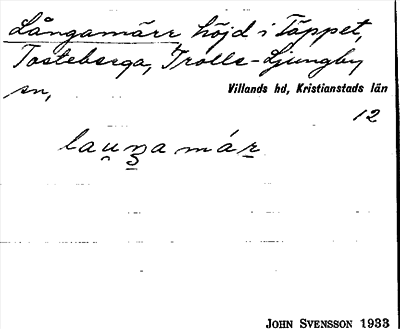 Långamärr höjd i Täppet,
Tosteberga, Trolle-Ljungby
sn,
Villands hd, Kristianstads län
12
lau̯ŋamár
JOHN SVENSSON 1933